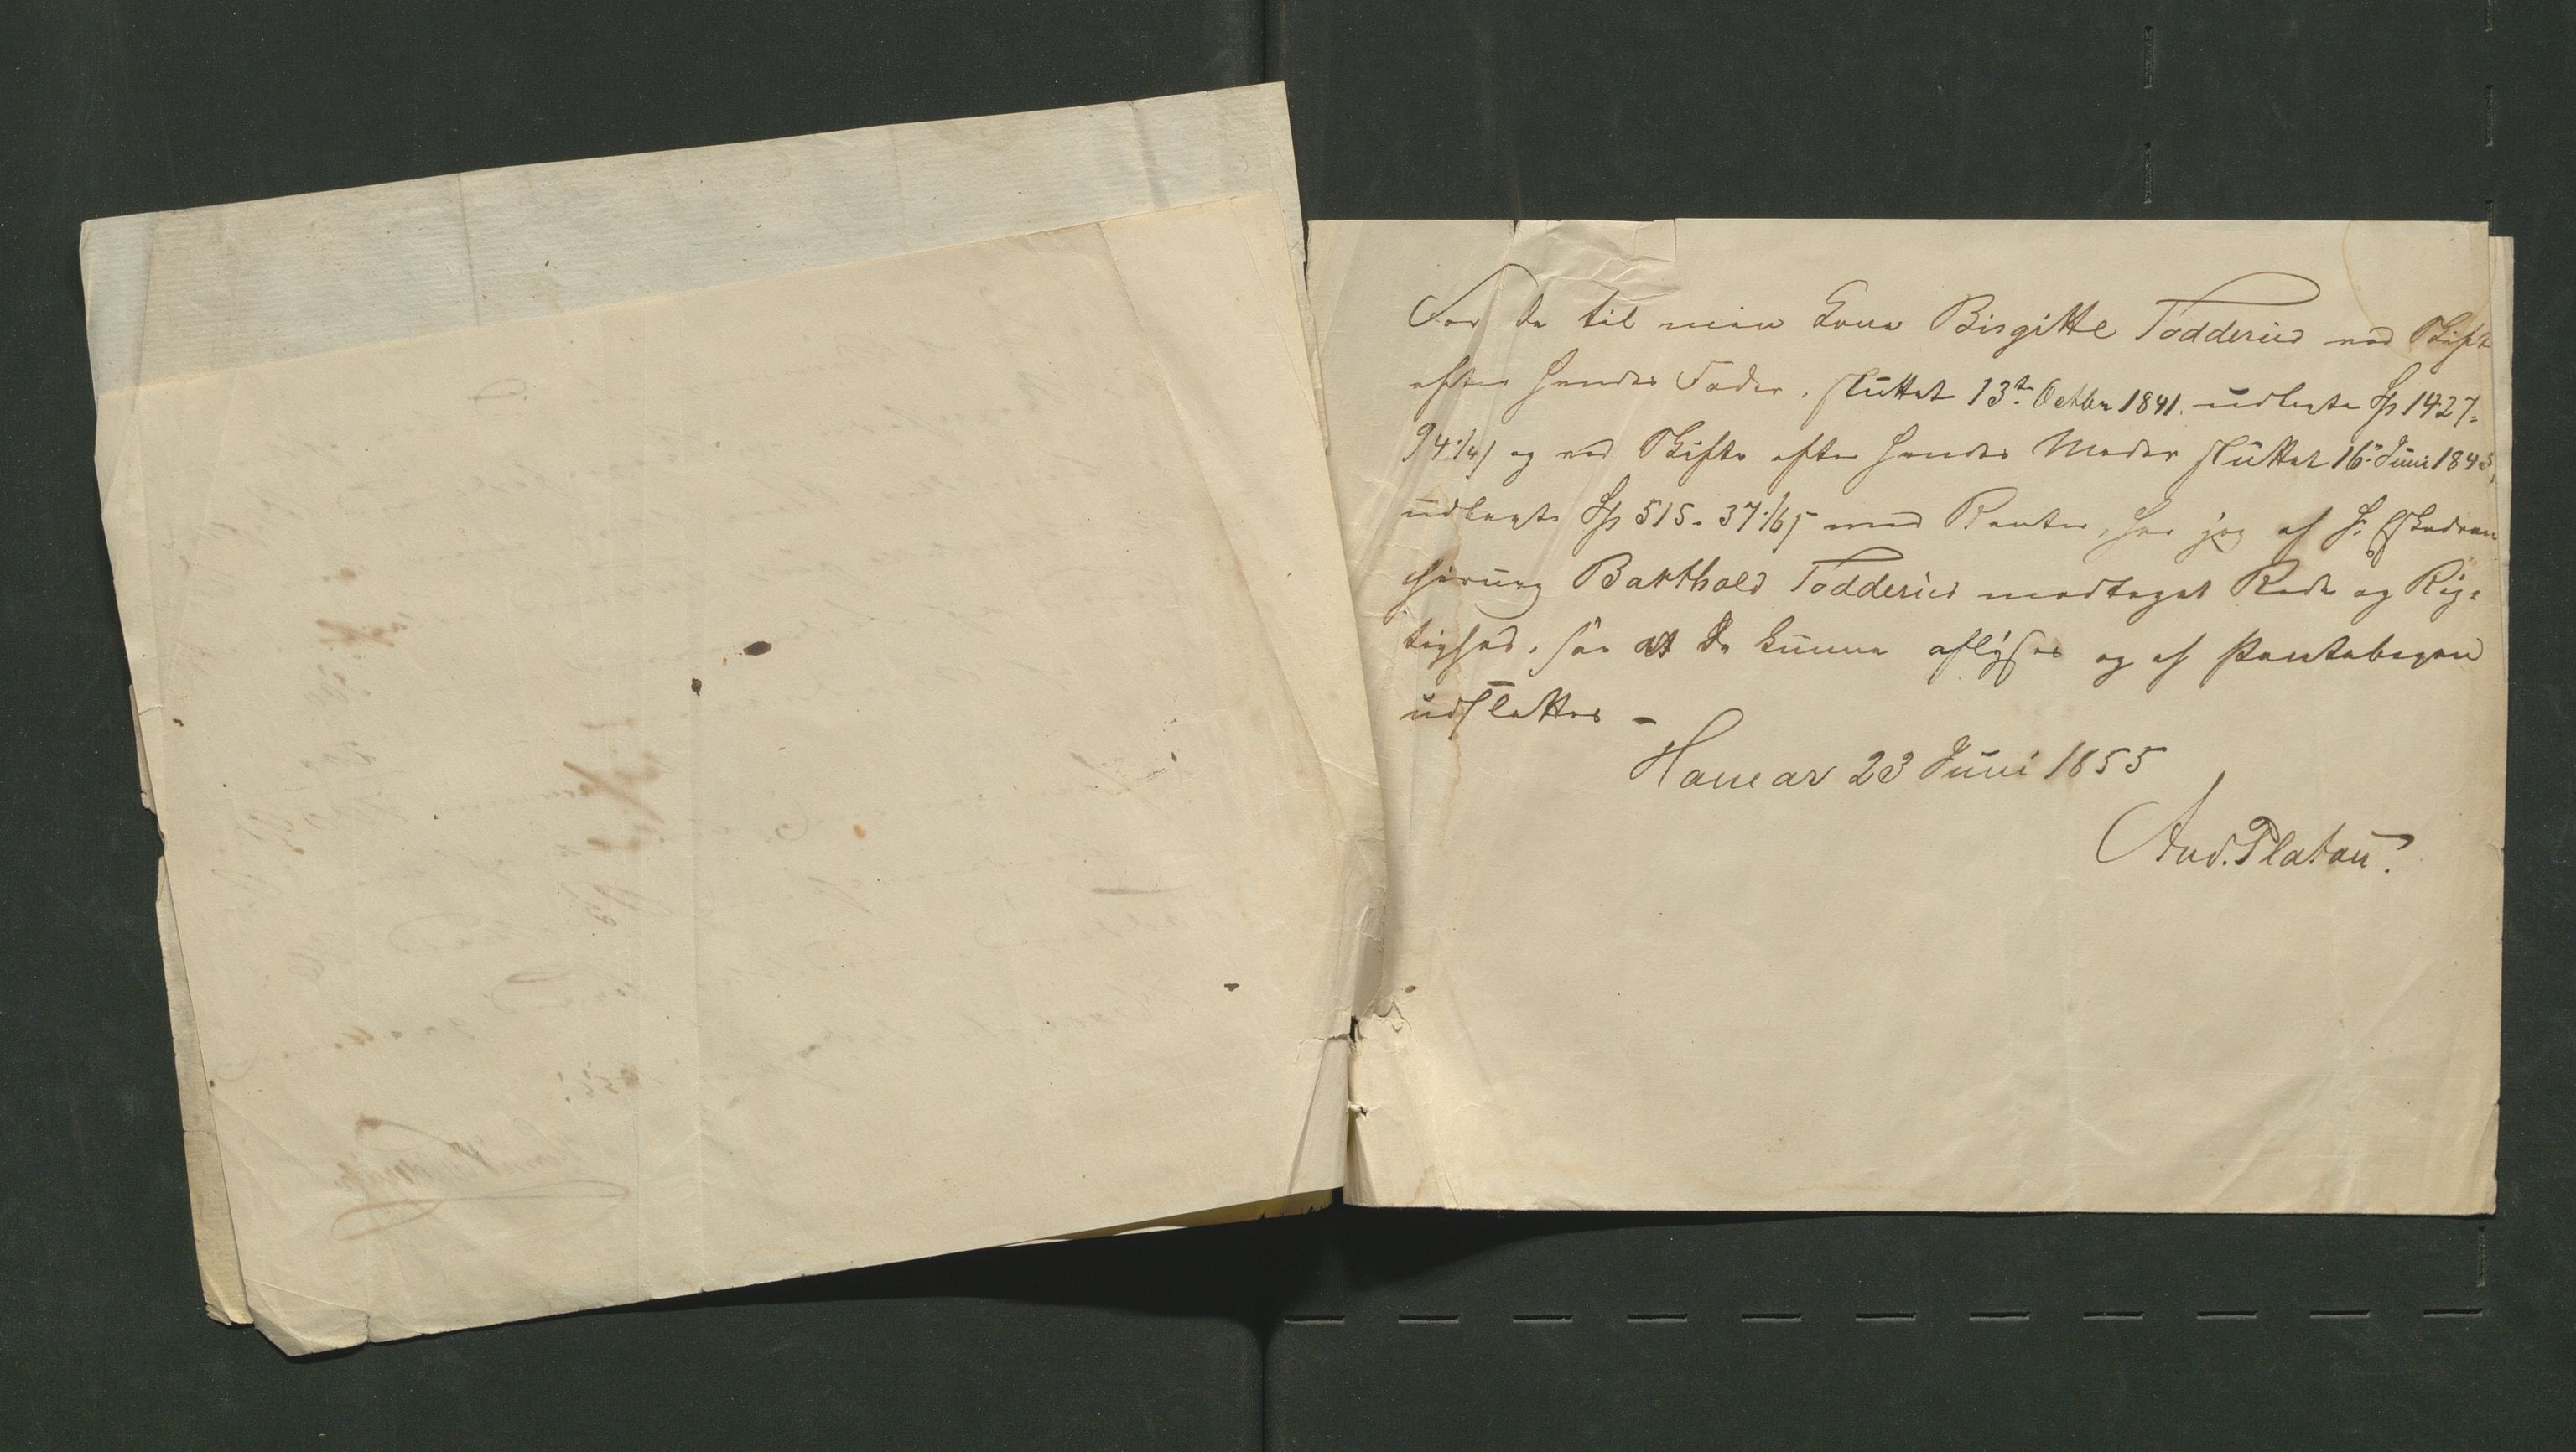 For de til min Kone Birgitte Todderud ved Skifte
efter hendes Fader, sluttet 13de Octbr 1841. udlagte Sp 1427=
94 1/4 f og ved Skifte efter hendes Moder sluttet 16. Juni 1845,
udlagte Sp 515- 37 1/6 f med Renter, har jeg af Hr Eskadron
chirurg Barthold Todderud modtaget Rede og Rig=
tighed, saa at de kunne aflyses og af Pantebogen
udslettes -
Hamar 23 Juni 1855
And. Platou.